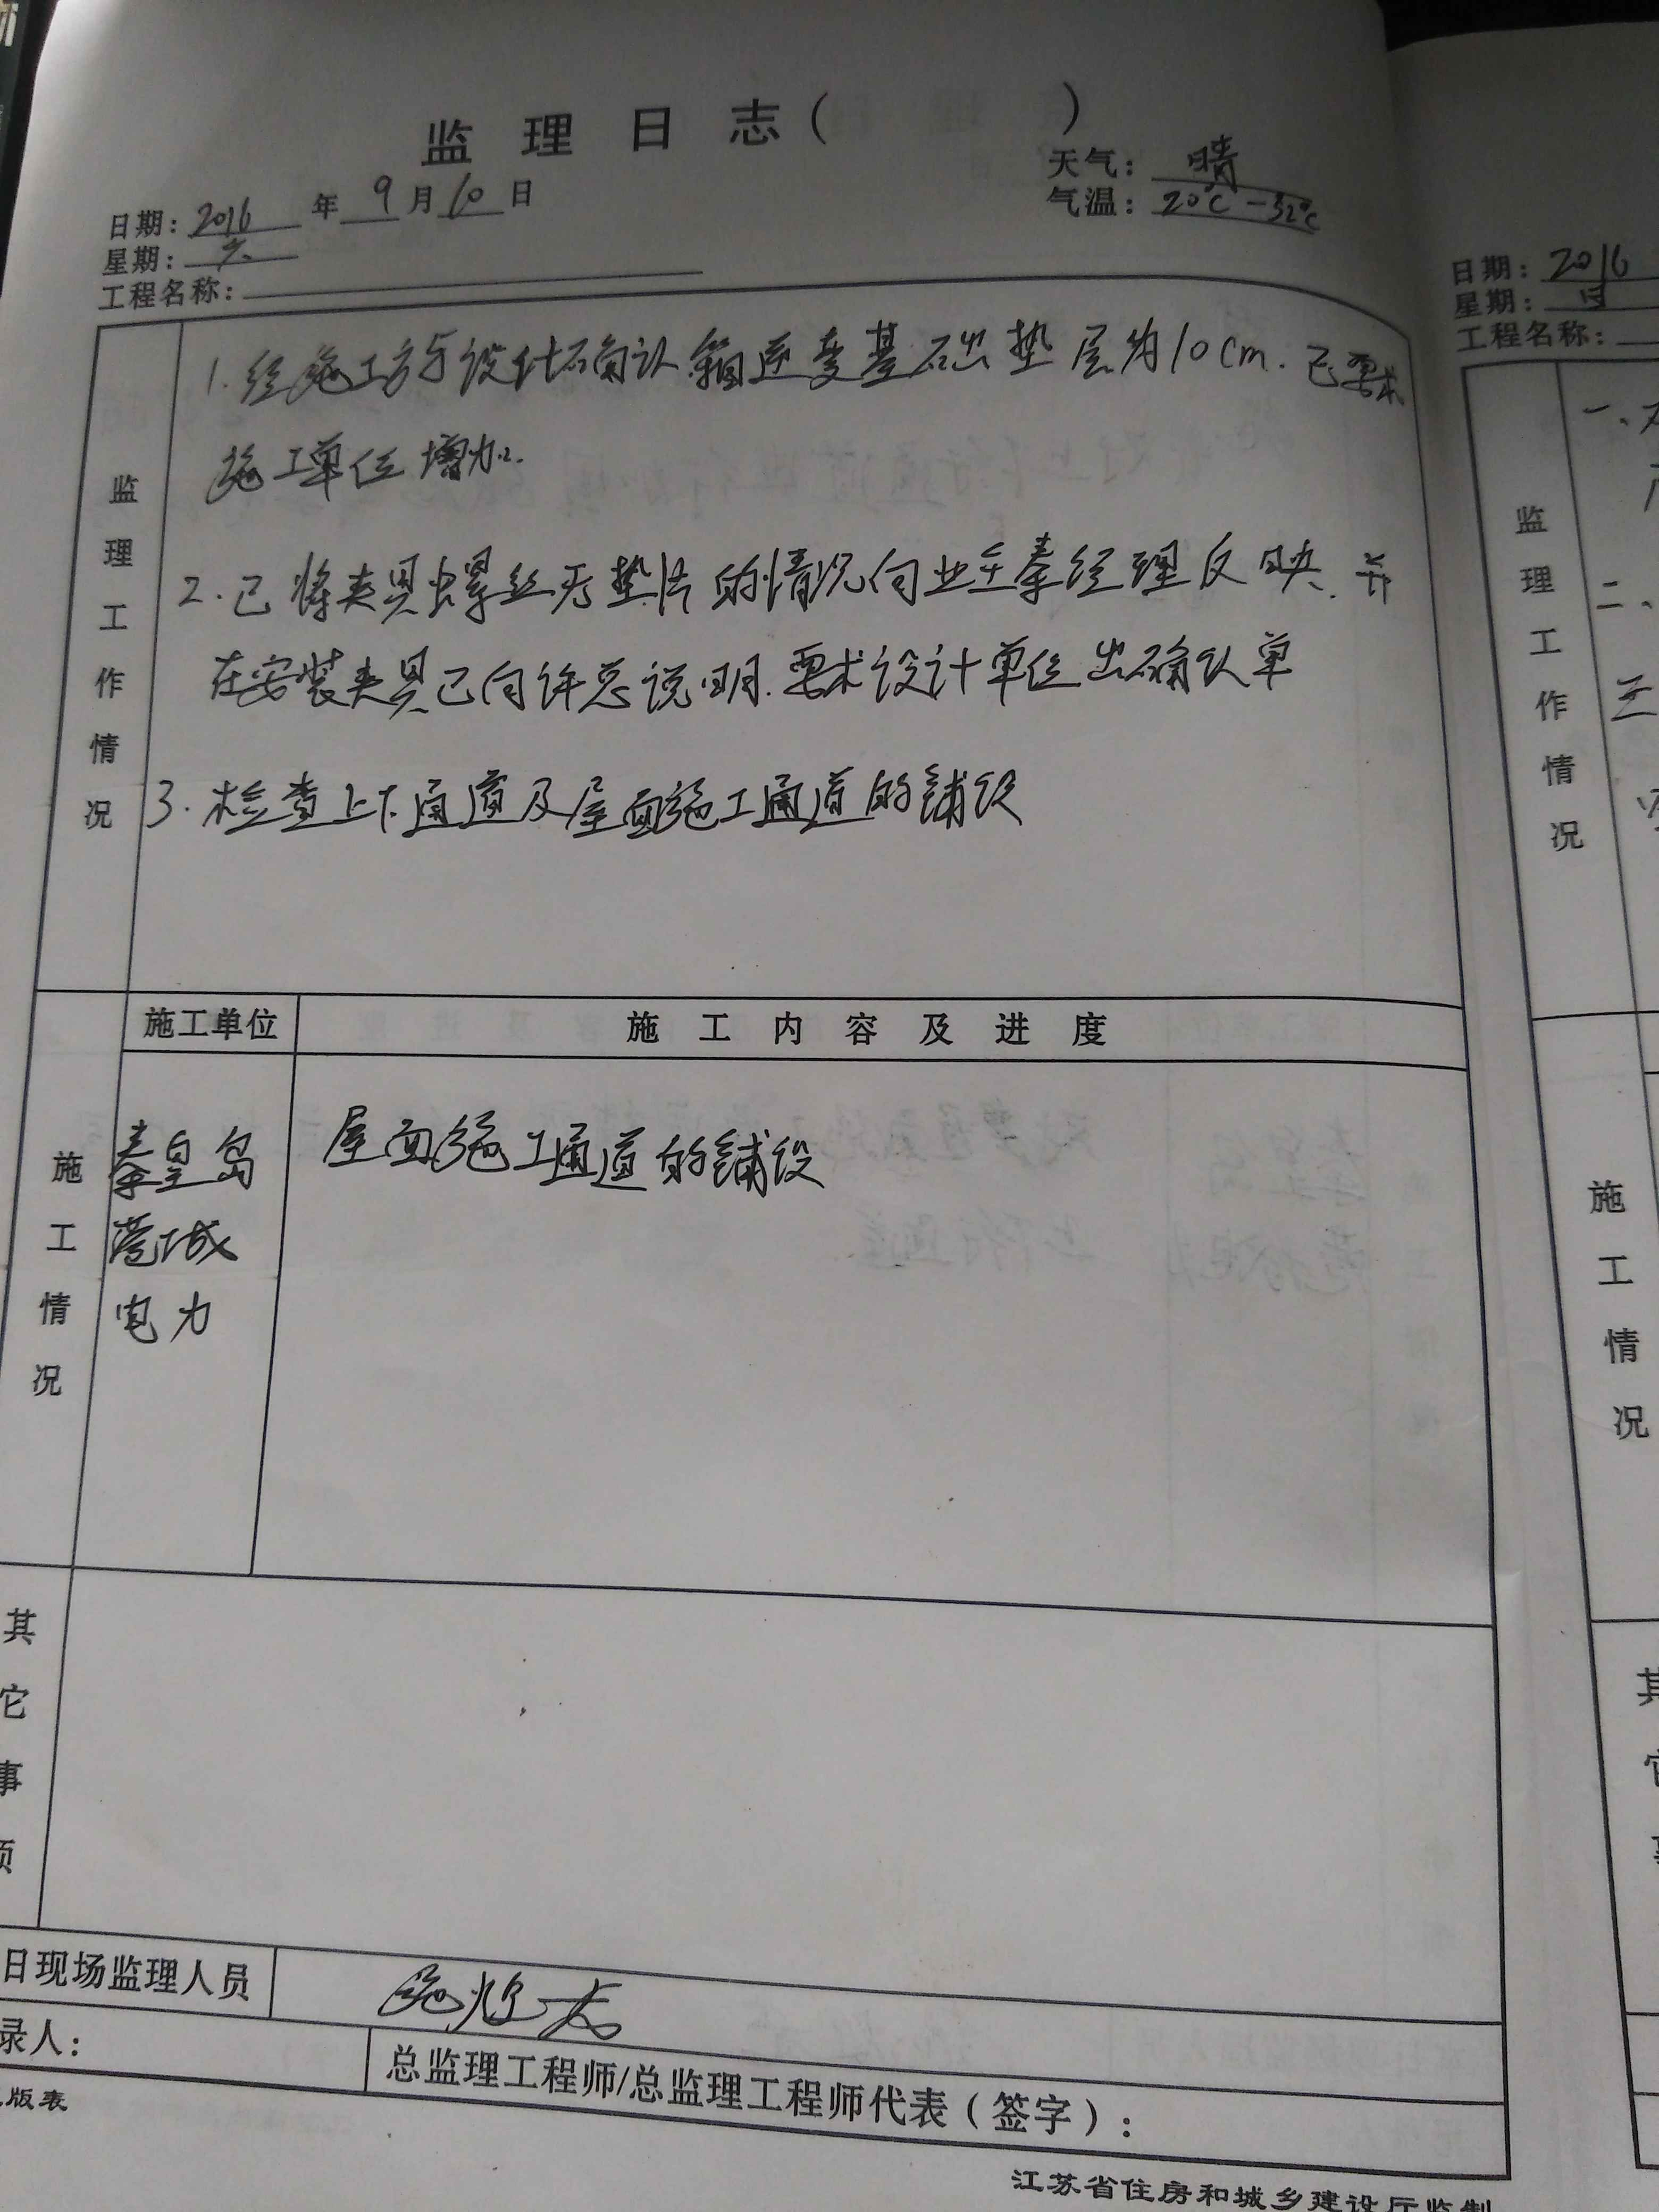 监理日志（ ）
天气：晴
日期：2016年9月10日
气温：20℃-32℃
星期：六
工程名称：
监理工作情况
1.经施工方与设计确认箱逆变基础垫层为10cm.已要求
施工单位增加.
2.已将夹具螺丝无垫片的情况向业主秦经理反映.并
在安装夹具已向许总说明.要求设计单位出确认单
3.检查上下通道及屋面施工通道的铺设
施工情况
施工单位
施工内容及进度
秦皇岛
港城
电力
屋面施工通道的铺设
其它事项
日现场监理人员
录人：
总监理工程师/总监理工程师代表（签字）：
版表
江苏省住房和城乡建设厅监制
日期：2016
星期：日
工程名称：
监理工作情况
一、
二、
三
施工情况
其